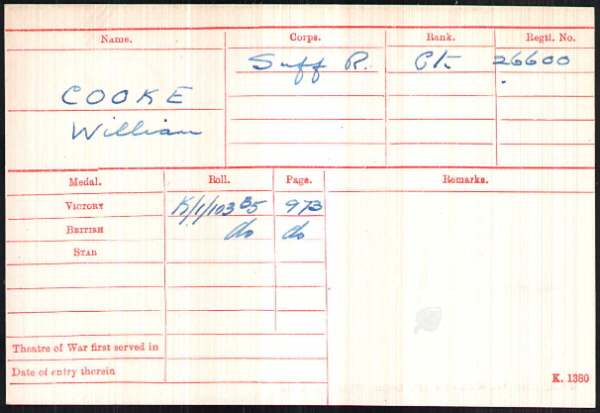 Name. Corps. Rank. Regtl. No.
Suff R. Pte 26600
COOKE
William
Medal. Roll. Page. Remarks.
VICTORY K/1/103 B5 973
BRITISH do do
STAR
Theatre of War first served in
Date of entry therein
K. 1380